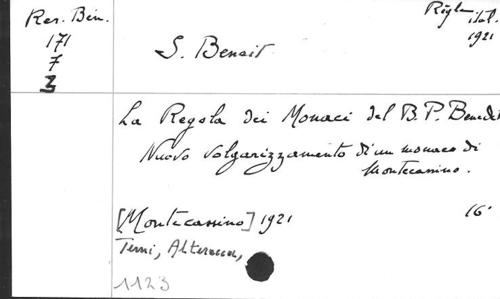 Res. Bén.
171
7
3
Règle ital.
1921
S. Benoit
La Regola dei Monaci del B. P. Benedet
Nuovo volgarizzamento di un monaco di
Montecassino.
[Montecassino] 1921
16°
Terni, Alterocca,
1123